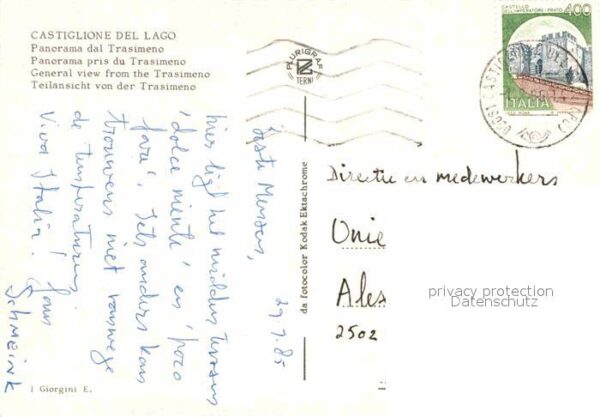 CASTIGLIONE DEL LAGO
Panorama dal Trasimeno
Panorama pris du Trasimeno
General view from the Trasimeno
Teilansicht von der Trasimeno
PLURIGRAF
TERNI
CASTELLO
DELL'IMPERATORE - PRATO
400
ITALIA
da fotocolor Kodak Ektachrome
29.7.85
Beste Mensen,
hier ligt het midden tussen
'dolce niente' en 'poco
fare', iets anders kan
trouwens niet vanwege
de temperaturen.
Viva Italia!
Schmeink
Directie en medewerkers
Unie
Ales
2502
privacy protection
Datenschutz
I Giorgini E.